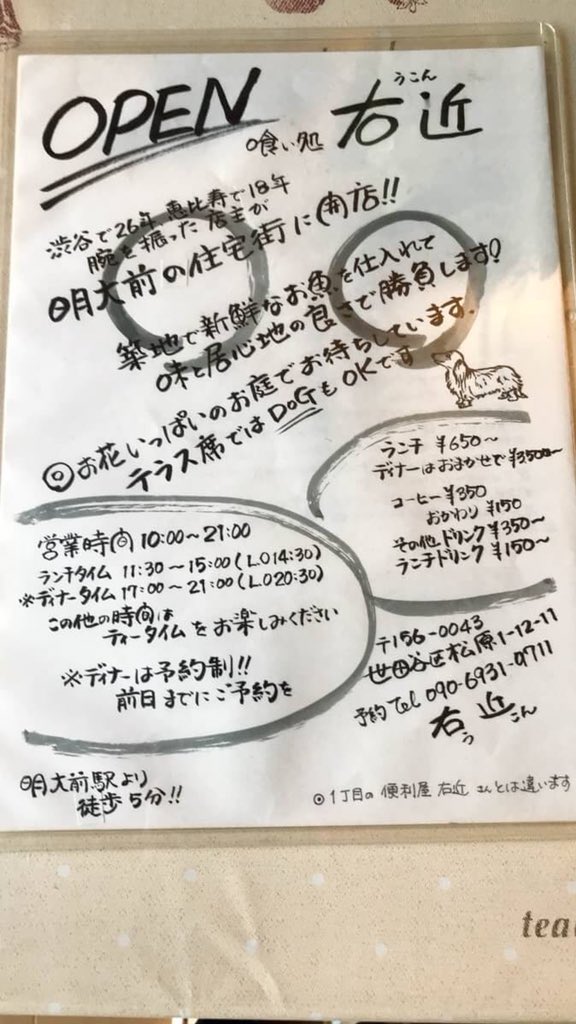 OPEN
喰い処 右近
うこん
渋谷で26年 恵比寿で18年
腕を振った 店主が
明大前の住宅街に開店!!
築地で新鮮なお魚を仕入れて
味と居心地の良さで勝負します!
◎お花いっぱいのお庭でお待ちしています。
テラス席ではDOGもOKです
ランチ ¥650〜
ディナーはおまかせで¥3500〜
コーヒー ¥350
おかわり ¥150
その他ドリンク ¥350〜
ランチドリンク ¥150〜
営業時間 10:00〜21:00
ランチタイム 11:30〜15:00(L.O14:30)
※ディナータイム 17:00〜21:00(L.O20:30)
この他の時間は
ティータイムをお楽しみください
※ディナーは予約制!!
前日までにご予約を
〒156-0043
世田谷区松原1-12-11
予約Tel 090-6931-0711
右近
うこん
明大前駅より
徒歩5分!!
◎1丁目の便利屋 右近 さんとは違います
tea